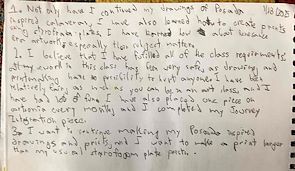 1. Not only have I continued my drawings of Posada
inspired calaveras, I have also learned how to create prints
using styrofoam plates, I have learned about
an artwork, especially the subject matter.
2. I believe that I have fulfilled all of the class requirements.
my work in this class has been very safe, as drawing and
printmaking have no possibility to hurt anyone. I have been
relatively safe, as much as you can be in an art class, and I
have had lots of time. I have also placed one piece on
Artsonia every month, and I completed my Journey
Integration piece.
3. I want to continue making my Posada inspired
drawings and prints, and I want to make a print larger
than my usual styrofoam plate prints.